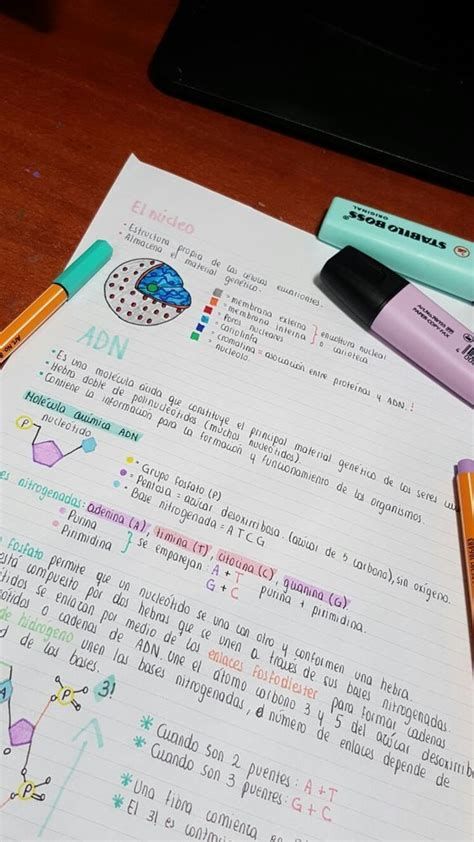 El núcleo
• Estructura propia de las células eucariontes.
• Almacena el material genético.
= membrana externa } envoltura nuclear
= membrana interna o carioteca
= Poros nucleares
= cariolinfa
= cromatina = asociación entre proteínas y ADN.
nucleolo.
ADN
• Es una molécula ácida que constituye el principal material genético de los seres
• Hebra doble de polinucleótidos (muchos nucleótidos)
• Contiene la información para la formación y funcionamiento de los organismos.
Molécula química ADN
nucleótido
P
• = Grupo fosfato (P)
• = Pentosa = azúcar desoxirribosa. (azúcar de 5 carbono), sin oxígeno.
• = Base nitrogenada = A T C G
nitrogenadas: adenina (A), timina (T), citocina (C), guanina (G)
• Purina
• Pirimidina } se emparejan: A + T purina + pirimidina.
G + C
fosfato permite que un nucleótido se una con otro y conformen una hebra.
está compuesto por dos hebras que se unen a través de sus bases nitrogenadas.
se enlazan por medio de los enlaces fosfodiester para formar cadenas
o cadenas de ADN. Une el átomo carbono 3 y 5 del azúcar
de hidrógeno unen las bases nitrogenadas, el número de enlaces depende de
de las bases.
3!
P
A
P
* Cuando son 2 puentes: A + T
* Cuando son 3 puentes: G + C
* Una fibra comienza
* El 3! es
STABILO BOSS
ORIGINAL